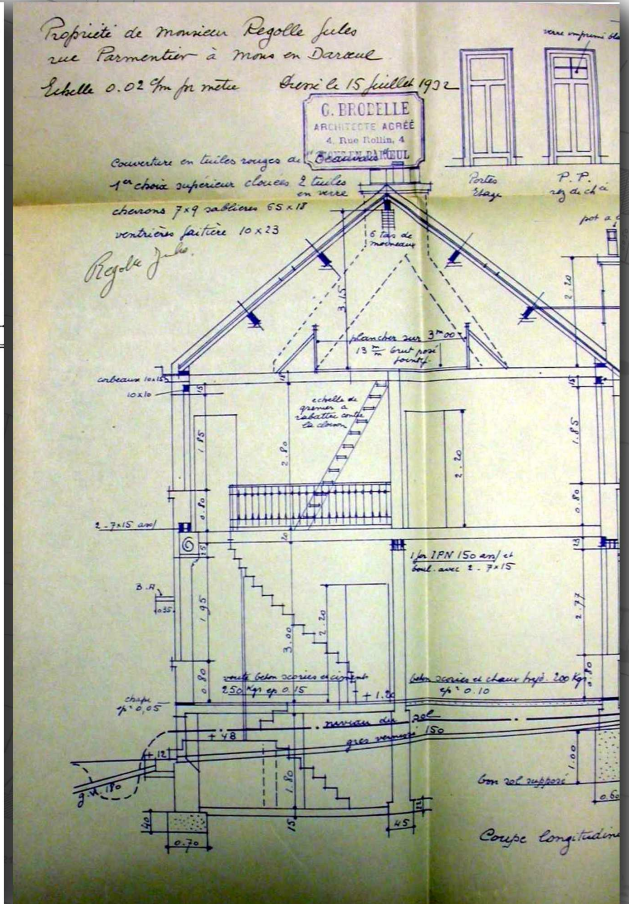 Propriété de monsieur Regolle Jules
rue Parmentier à Mons en Barœul
Echelle 0.02 c/m pr mètre Dressé le 15 juillet 1932
G. BRODELLE
ARCHITECTE AGRÉÉ
4, Rue Rollin, 4
MONS-EN-BARŒUL
verre imprimé
Portes
étage
P. P.
rez de ch
couverture en tuiles rouges de Beauvais
1er choix supérieur clouées 2 tuiles
en verre
chevrons 7x9 sablières 65x18
ventrières faitière 10x23
Regolle Jules.
pot a
6 tas de
moineaux
3.15
2.20
plancher sur 3m00
13 m/m brut posé
jointif
corbeaux 10x15
10x10
15
15
15
echelle de
grenier à
rabattre contre
la cloison
1.85
2.80
2.20
1.85
0.80
0.80
2-7x15 anc/
20
15
15
1 fer IPN 150 anc/ et
boul. avec 2-7x15
B.A
0.35
1.95
3.00
2.20
2.77
0.80
0.80
voute beton scories et ciment
250 Kgs ep 0.15
beton scories et chaux hyd. 200 Kgs
epr 0.10
chape
epr 0.05
+1.20
niveau du sol
+48
grès vernissé 150
+12
1.80
1.00
g.v. 180
bon sol supposé
40
0.70
15
45
0.60
Coupe longitudin